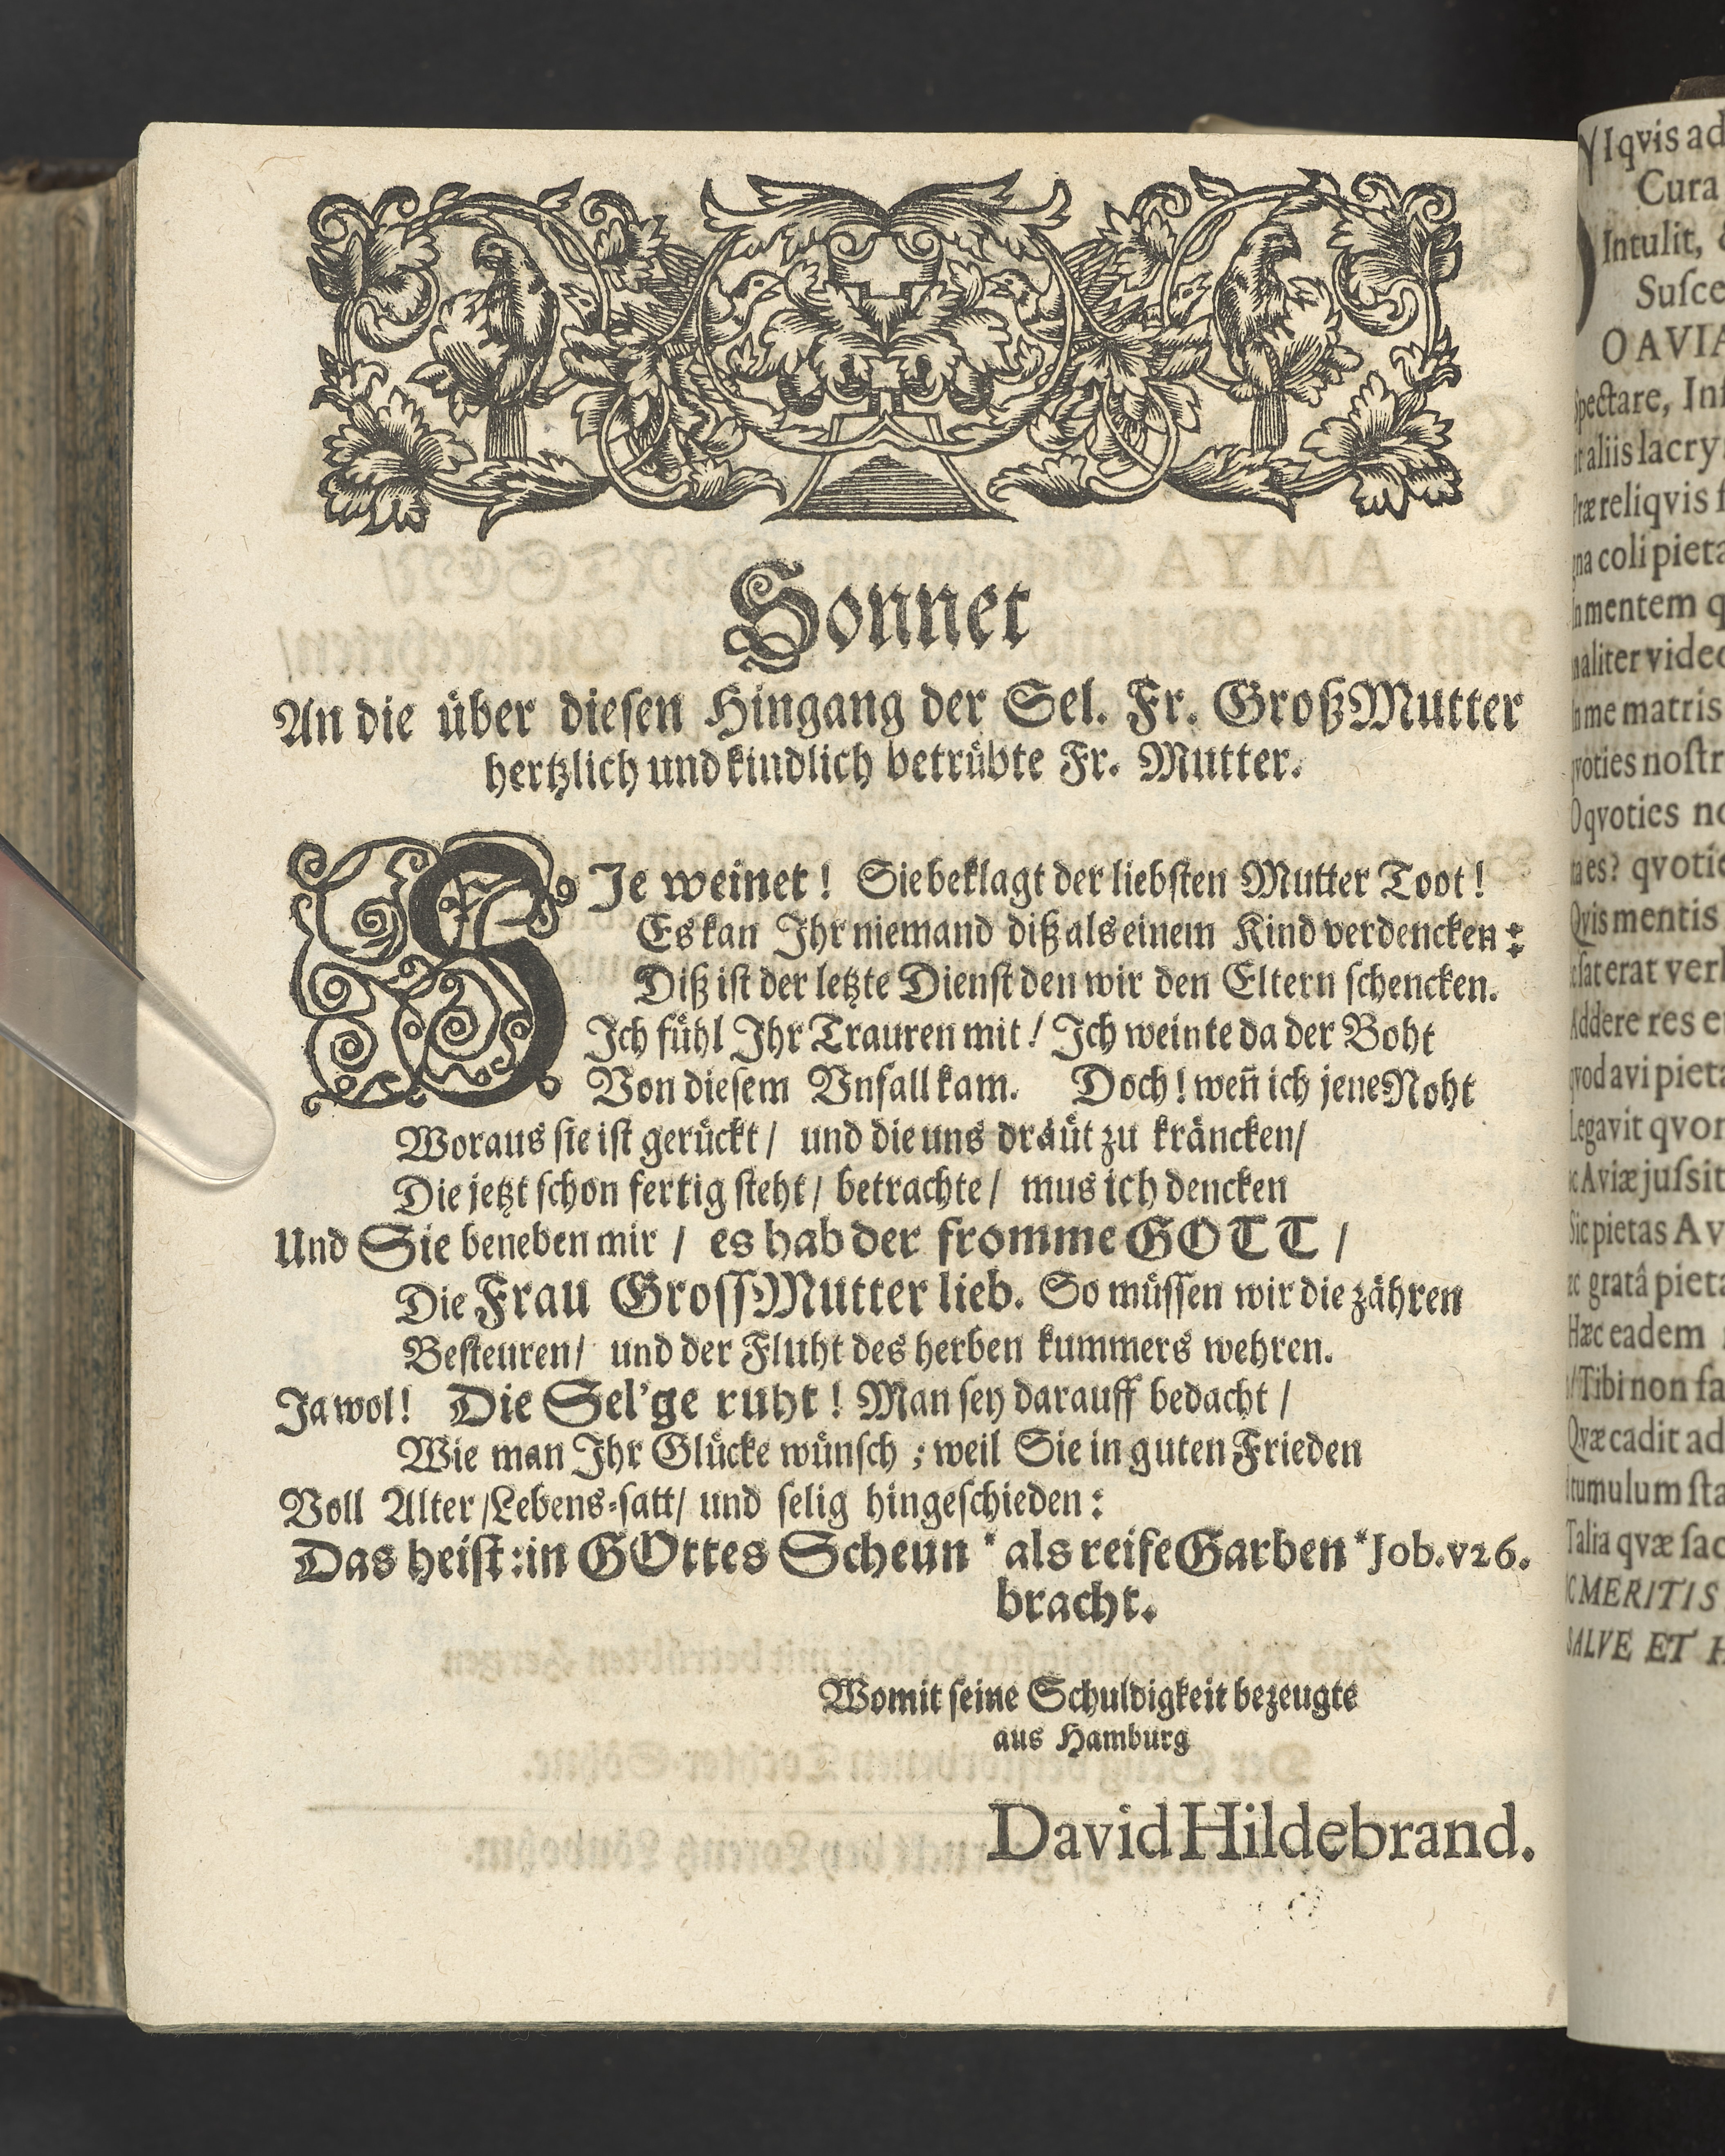 Sonnet
An die über diesen Hingang der Sel. Fr. GroßMutter
hertzlich und kindlich betrübte Fr. Mutter.
SJe weinet! Sie beklagt der liebsten Mutter Toot!
Es kan Jhr niemand diß als einem Kind verdencken:
Diß ist der letzte Dienst den wir den Eltern schencken.
Jch fühl Jhr Trauren mit! Jch weinte da der Boht
Von diesem Vnfall kam. Doch! weñ ich jene Noht
Woraus sie ist gerückt/ und die uns dräüt zu kräncken/
Die jetzt schon fertig steht/ betrachte/ mus ich dencken
Und Sie beneben mir / es hab der fromme GOTT /
Die Frau GrossMutter lieb. So müssen wir die zähren
Besteuren/ und der Fluht des herben kummers wehren.
Ja wol! Die Sel'ge ruht! Man sey darauff bedacht /
Wie man Jhr Glücke wünsch ; weil Sie in guten Frieden
Voll Alter /Lebens-satt/ und selig hingeschieden:
Das heist: in GOttes Scheun * als reife Garben *Job. v 26.
bracht.
Womit seine Schuldigkeit bezeugte
aus Hamburg
David Hildebrand.
Iqvis ad
Cura
Intulit,
Susce
O AVIA
Spectare,
aliis lacry
Præ reliqvis
coli pieta
mentem
aliter video
me matris
nostr
O qvoties
es? qvotie
Qvis mentis
sat erat
Addere res
avi pieta
Legavit qvo
Aviæ jussit
Sic pietas Av
gratâ pieta
Hæc eadem
Tibi non
Qvæ cadit ad
tumulum sta
Talia qvæ
MERITIS
SALVE ET